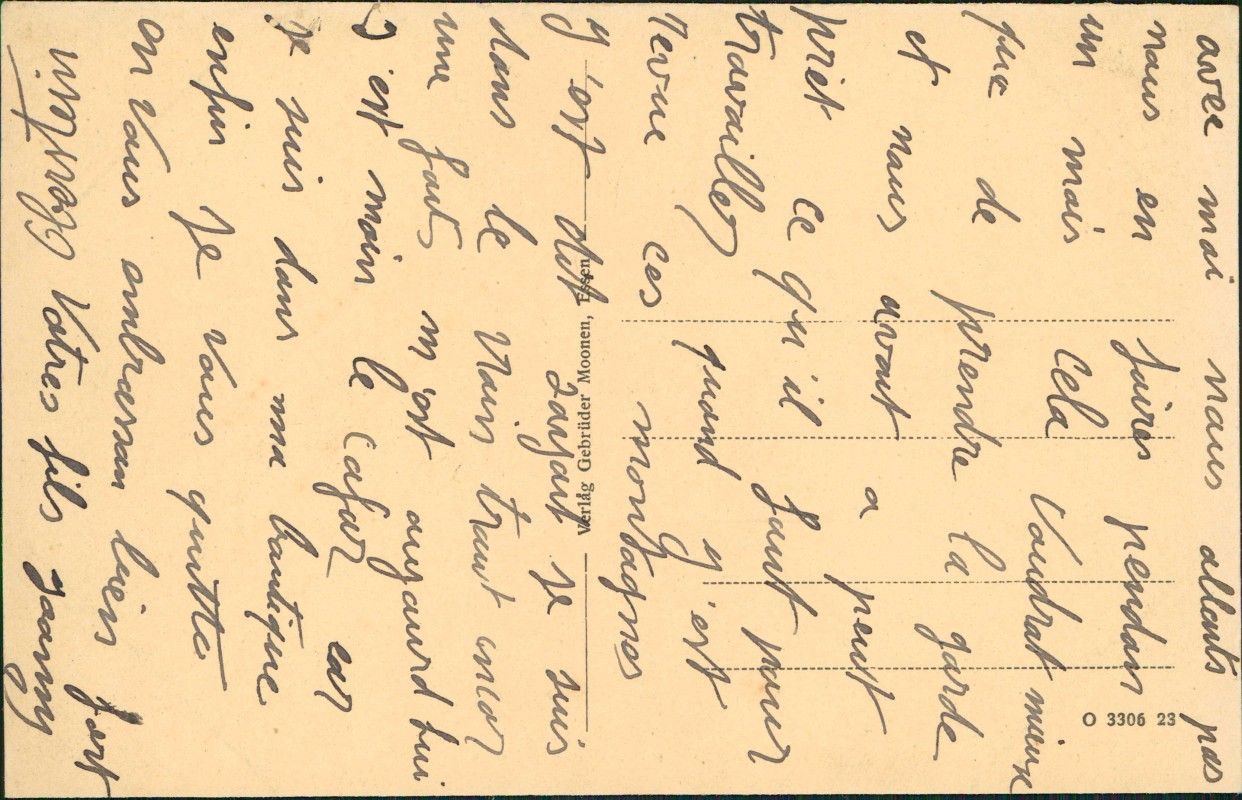 avec moi nous allons pas
nous en fuires pendan
un mois cela vaudrat mieux
que de prendre la garde
et nous avont a peut
pret ce qu'il faut pour
travailler quand g c'est
revue ces montagnes
g 'est dit Zayart je suis
dans le vrais trant encor
une fois m'ont aujourd hui
g est moin le cafar car
je suis dans ma boutique
enfin je vous quitte
en vous embrassan bien fort
Votres fils
O 3306 23
Verlag Gebrüder Moonen, Essen